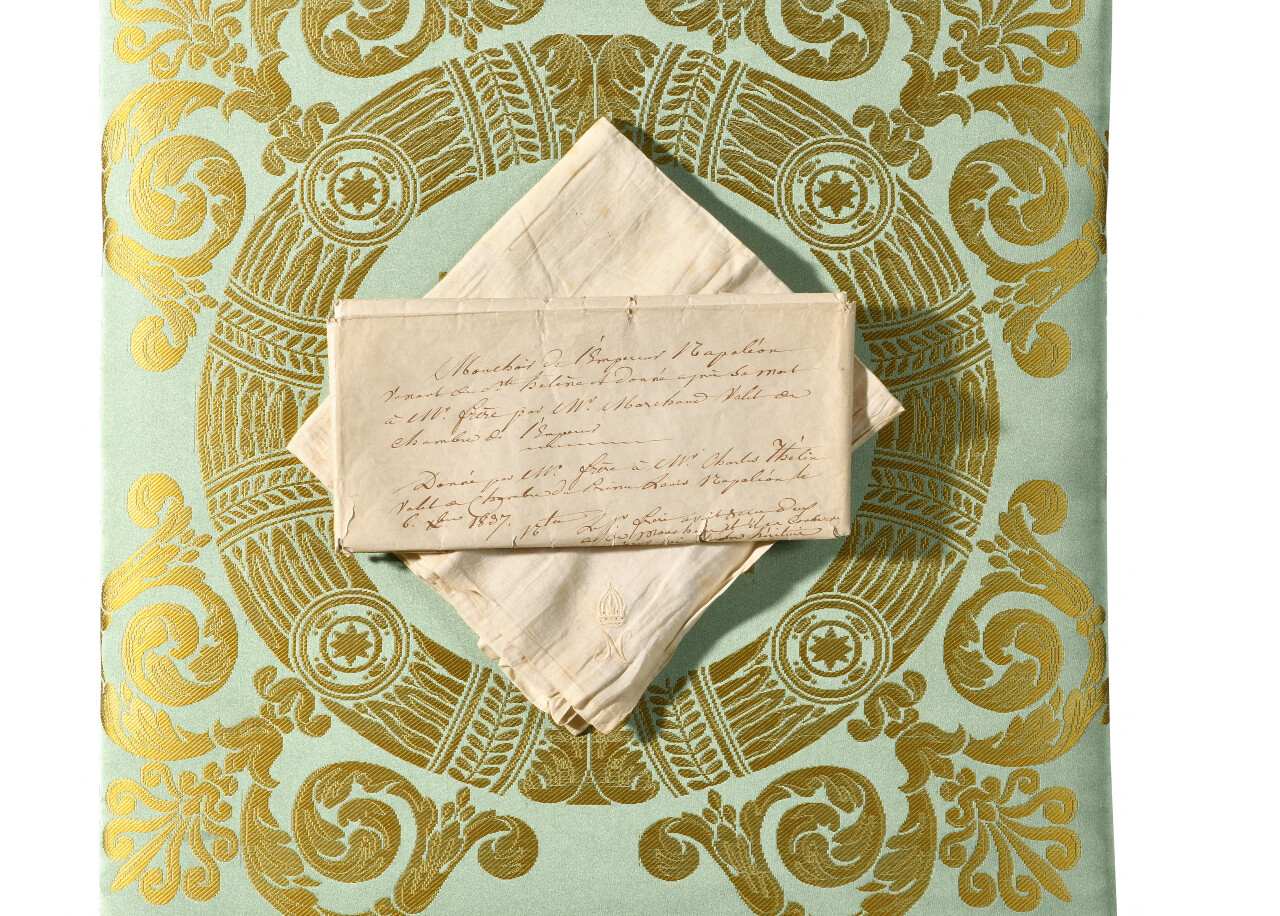 Mouchoir de l'Empereur Napoléon
venant de Ste hélène et donné après sa mort
à Mr. frère par Mr. Marchand Valet de
chambre de l'Empereur
Donné par Mr. frère à Mr. Charles Thélin
Valet de Chambre du Prince Louis Napoléon le
6 Xbre 1837. Le Mr frère avait reçu deux
mouchoirs et il
N